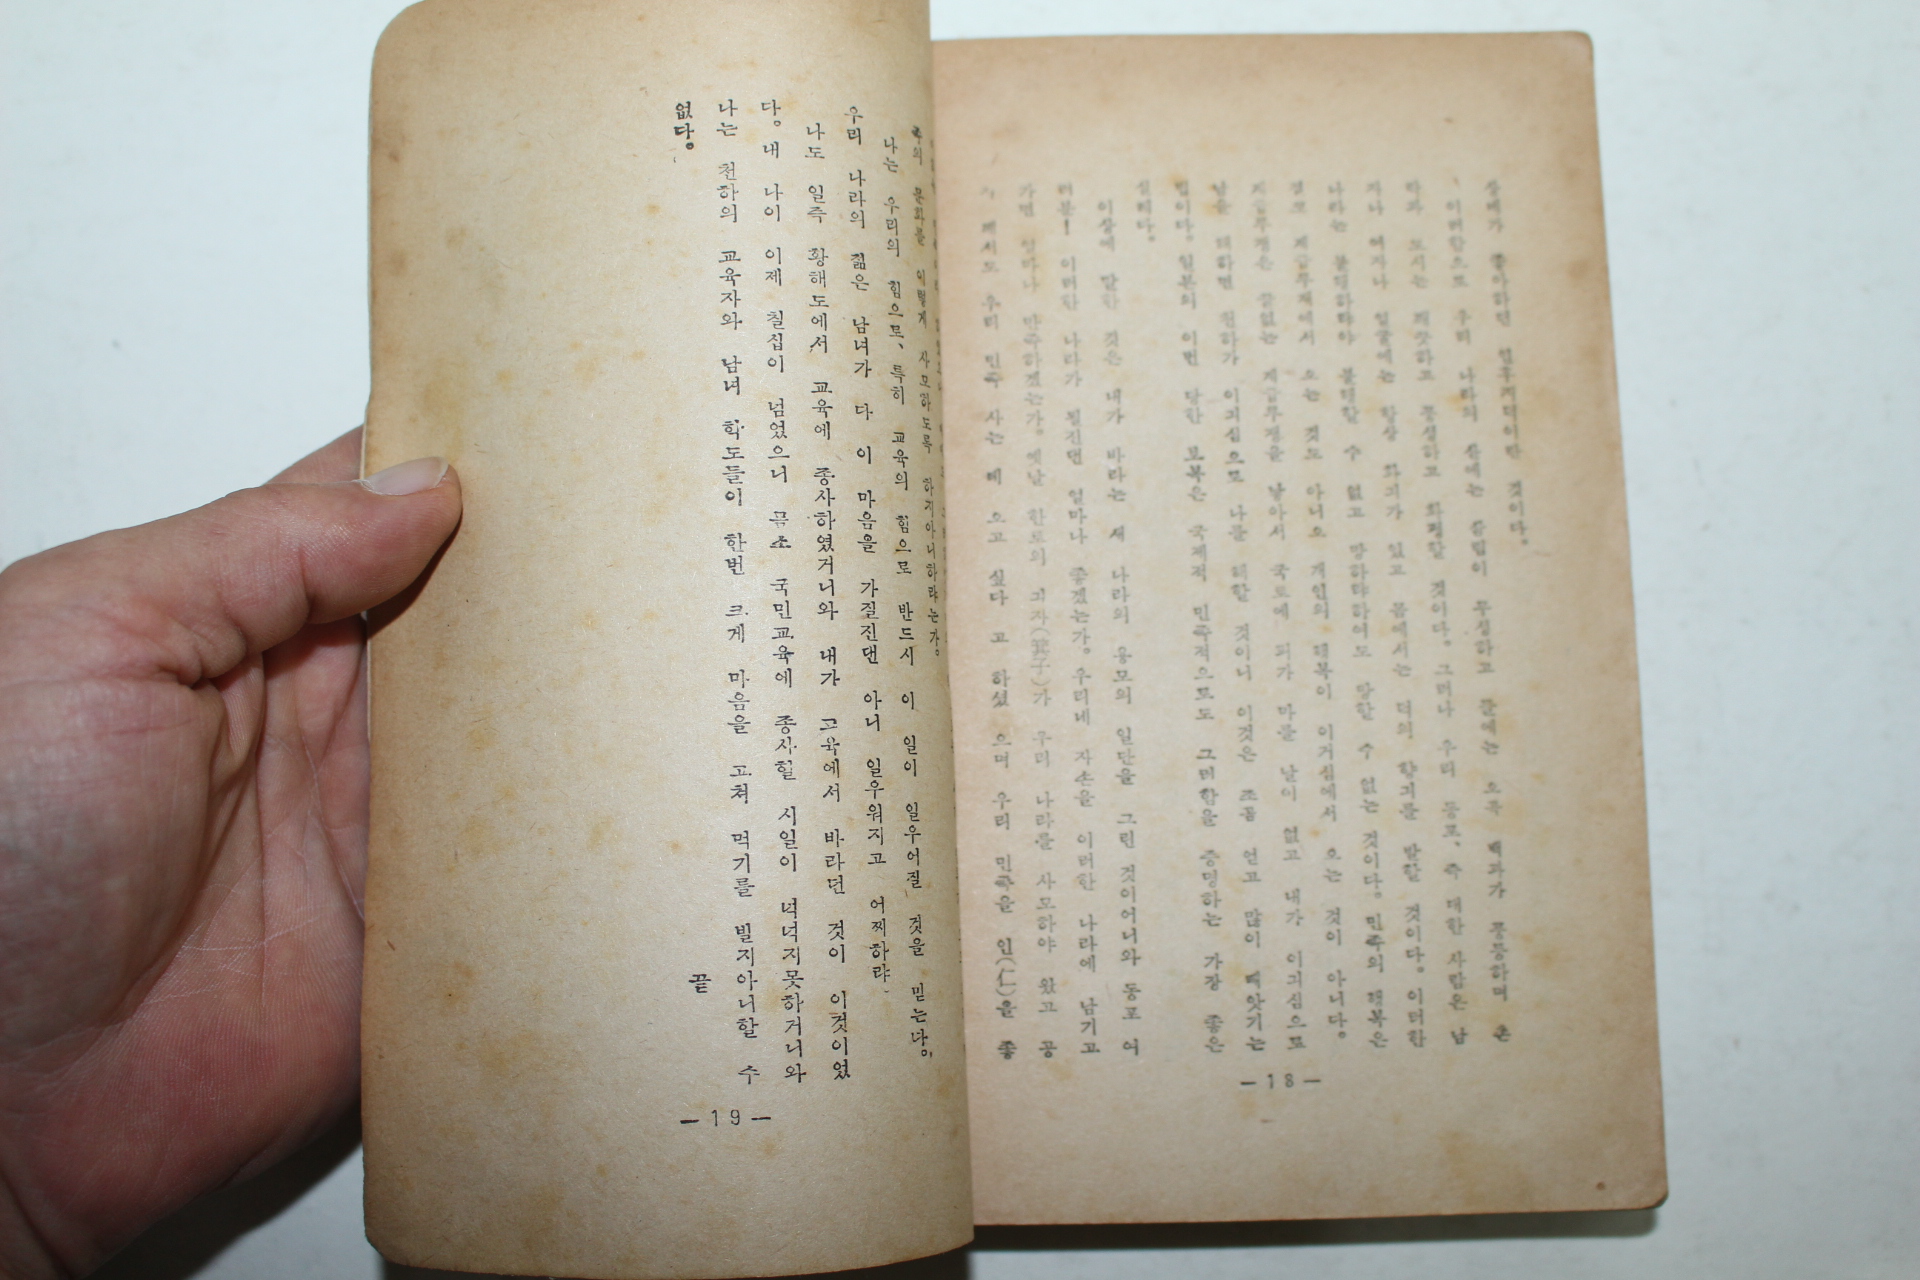 상네가 좋아하던 인후지덕이란 것이다.
이러함으로 우리 나라의 산에는 삼림이 무성하고 들에는 오곡 백과가 풍등하며 촌
락과 도시는 깨끗하고 풍성하고 화평할 것이다. 그러나 우리 동포, 즉 대한 사람은 남
자나 여자나 얼굴에는 항상 화기가 있고 몸에서는 덕의 향기를 발할 것이다. 이러한
나라는 불행하랴야 불행할 수 없고 망하랴하여도 망할 수 없는 것이다. 민족의 행복은
결코 계급투쟁에서 오는 것도 아니오 개인의 행복이 이기심에서 오는 것이 아니다.
계급투쟁은 끝없는 계급투쟁을 낳아서 국토에 피가 마를 날이 없고 내가 이기심으로
남을 해하면 천하가 이기심으로 나를 해할 것이니 이것은 조곰 얻고 많이 빼앗기는
법이다. 일본의 이번 당한 보복은 국제적 민족적으로도 그러함을 증명하는 가장 좋은
실례다.
이상에 말한 것은 내가 바라는 새 나라의 용모의 일단을 그린 것이어니와 동포 여
러분! 이러한 나라가 될진댄 얼마나 좋겠는가. 우리네 자손을 이러한 나라에 남기고
가면 얼마나 만족하겠는가. 옛날 한토의 기자(箕子)가 우리 나라를 사모하야 왔고 공
자 께서도 우리 민족 사는 데 오고 싶다 고 하셨 으며 우리 민족을 인(仁)을 좋
—18—
족의 문화를 이렇게 사모하도록 하지아니하랴는가.
나는 우리의 힘으로, 특히 교육의 힘으로 반드시 이 일이 일우어질 것을 믿는다.
우리 나라의 젊은 남녀가 다 이 마음을 가질진댄 아니 일우워지고 어찌하랴
나도 일즉 황해도에서 교육에 종사하였거니와 내가 교육에서 바라던 것이 이것이었
다. 내 나이 이제 칠십이 넘었으니 몸소 국민교육에 종사할 시일이 넉넉지못하거니와
나는 천하의 교육자와 남녀 학도들이 한번 크게 마음을 고쳐 먹기를 빌지아니할 수
없다.
끝
—19—